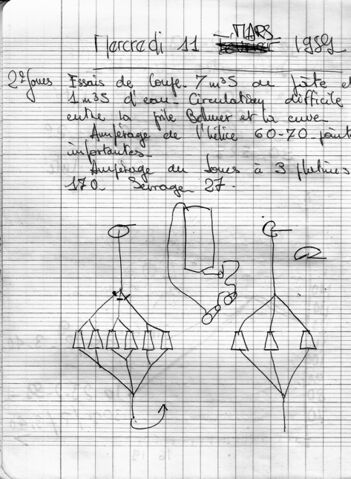 MARS
Mercredi 11 1981
2e Jones Essais de Coupe. 7 m3s de pâte et
1 m3s d'eau. Circulation difficile
entre la pile Banner et la cuve.
Ampérage de l'hélice 60-70 point
importantes.
Ampérage du Jones à 3 platines
170. Serrage 27.